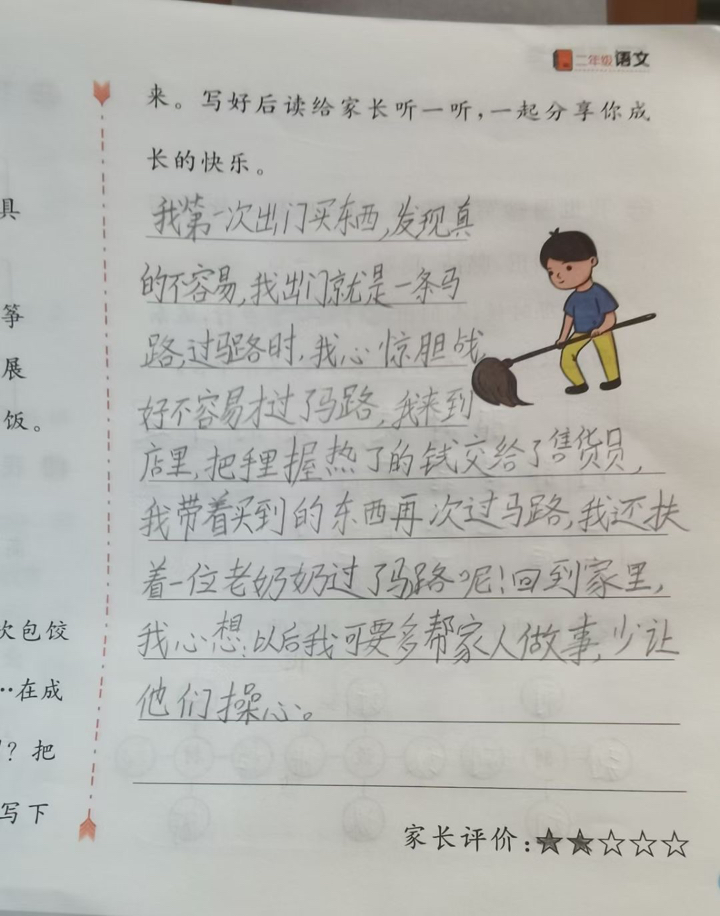 二年级 语文
来。写好后读给家长听一听，一起分享你成
长的快乐。
我第一次出门买东西,发现真
的不容易,我出门就是一条马
路,过马路时,我心惊胆战,
好不容易才过了马路,我来到
店里,把手里握热了的钱交给了售货员,
我带着买到的东西再次过马路,我还扶
着一位老奶奶过了马路呢!回到家里,
我心想:以后我可要多帮家人做事,少让
他们操心。
家长评价:★★☆☆☆
具
筝
展
饭。
次包饺
…在成
? 把
写下